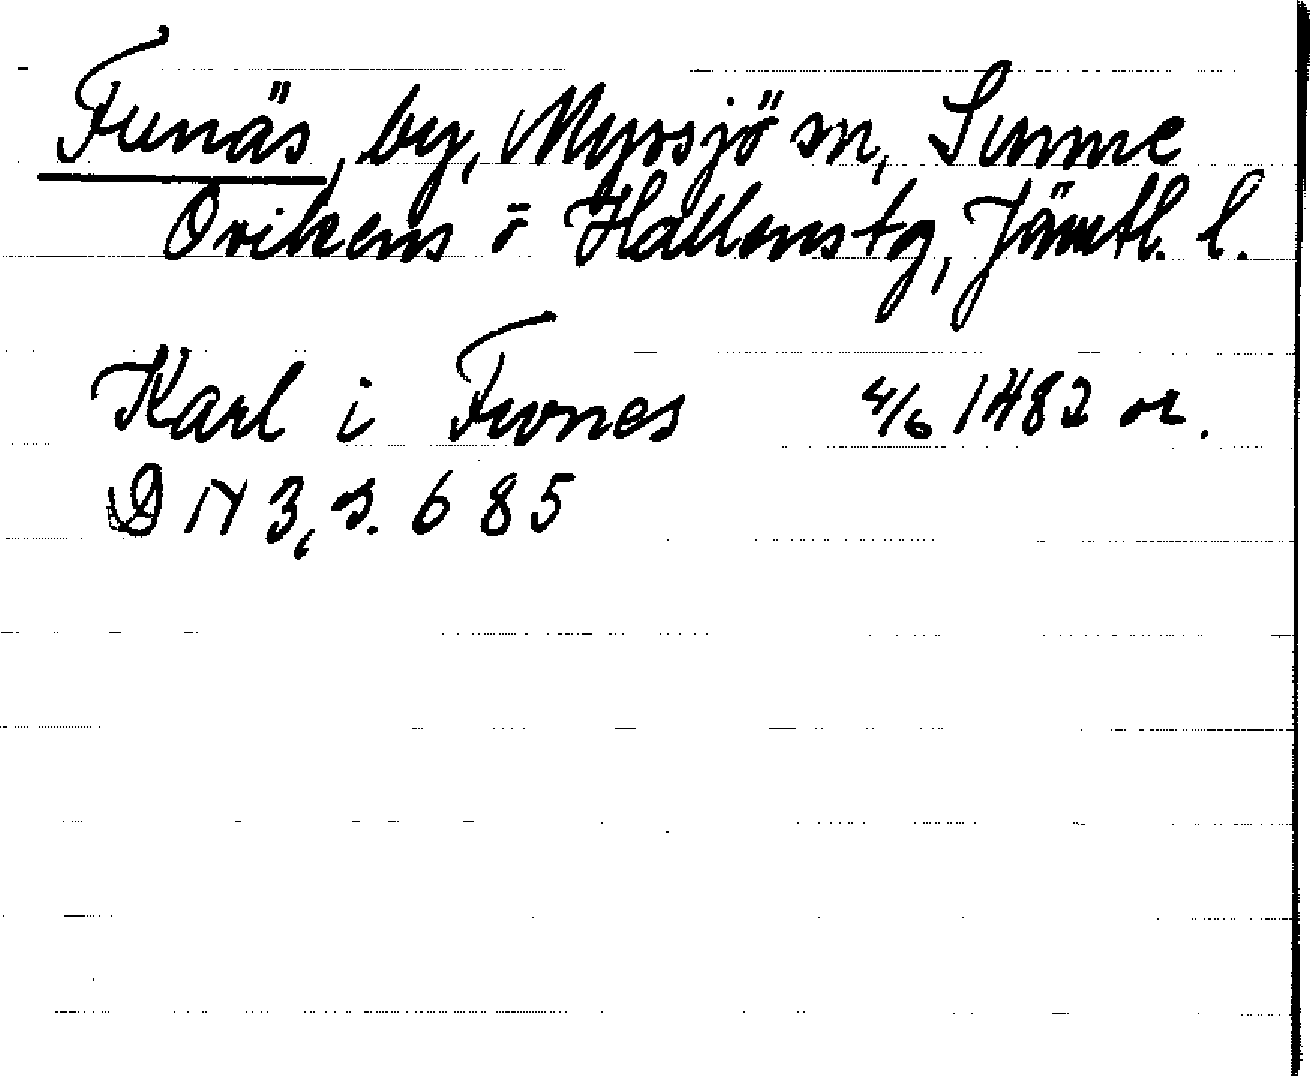 Funäs, by, Myssjö sn, Sunne
Ovikens o Hallens tg, Jämtl. l.
Karl i Fvnes 4/6 1482 or.
DN 3, s. 685